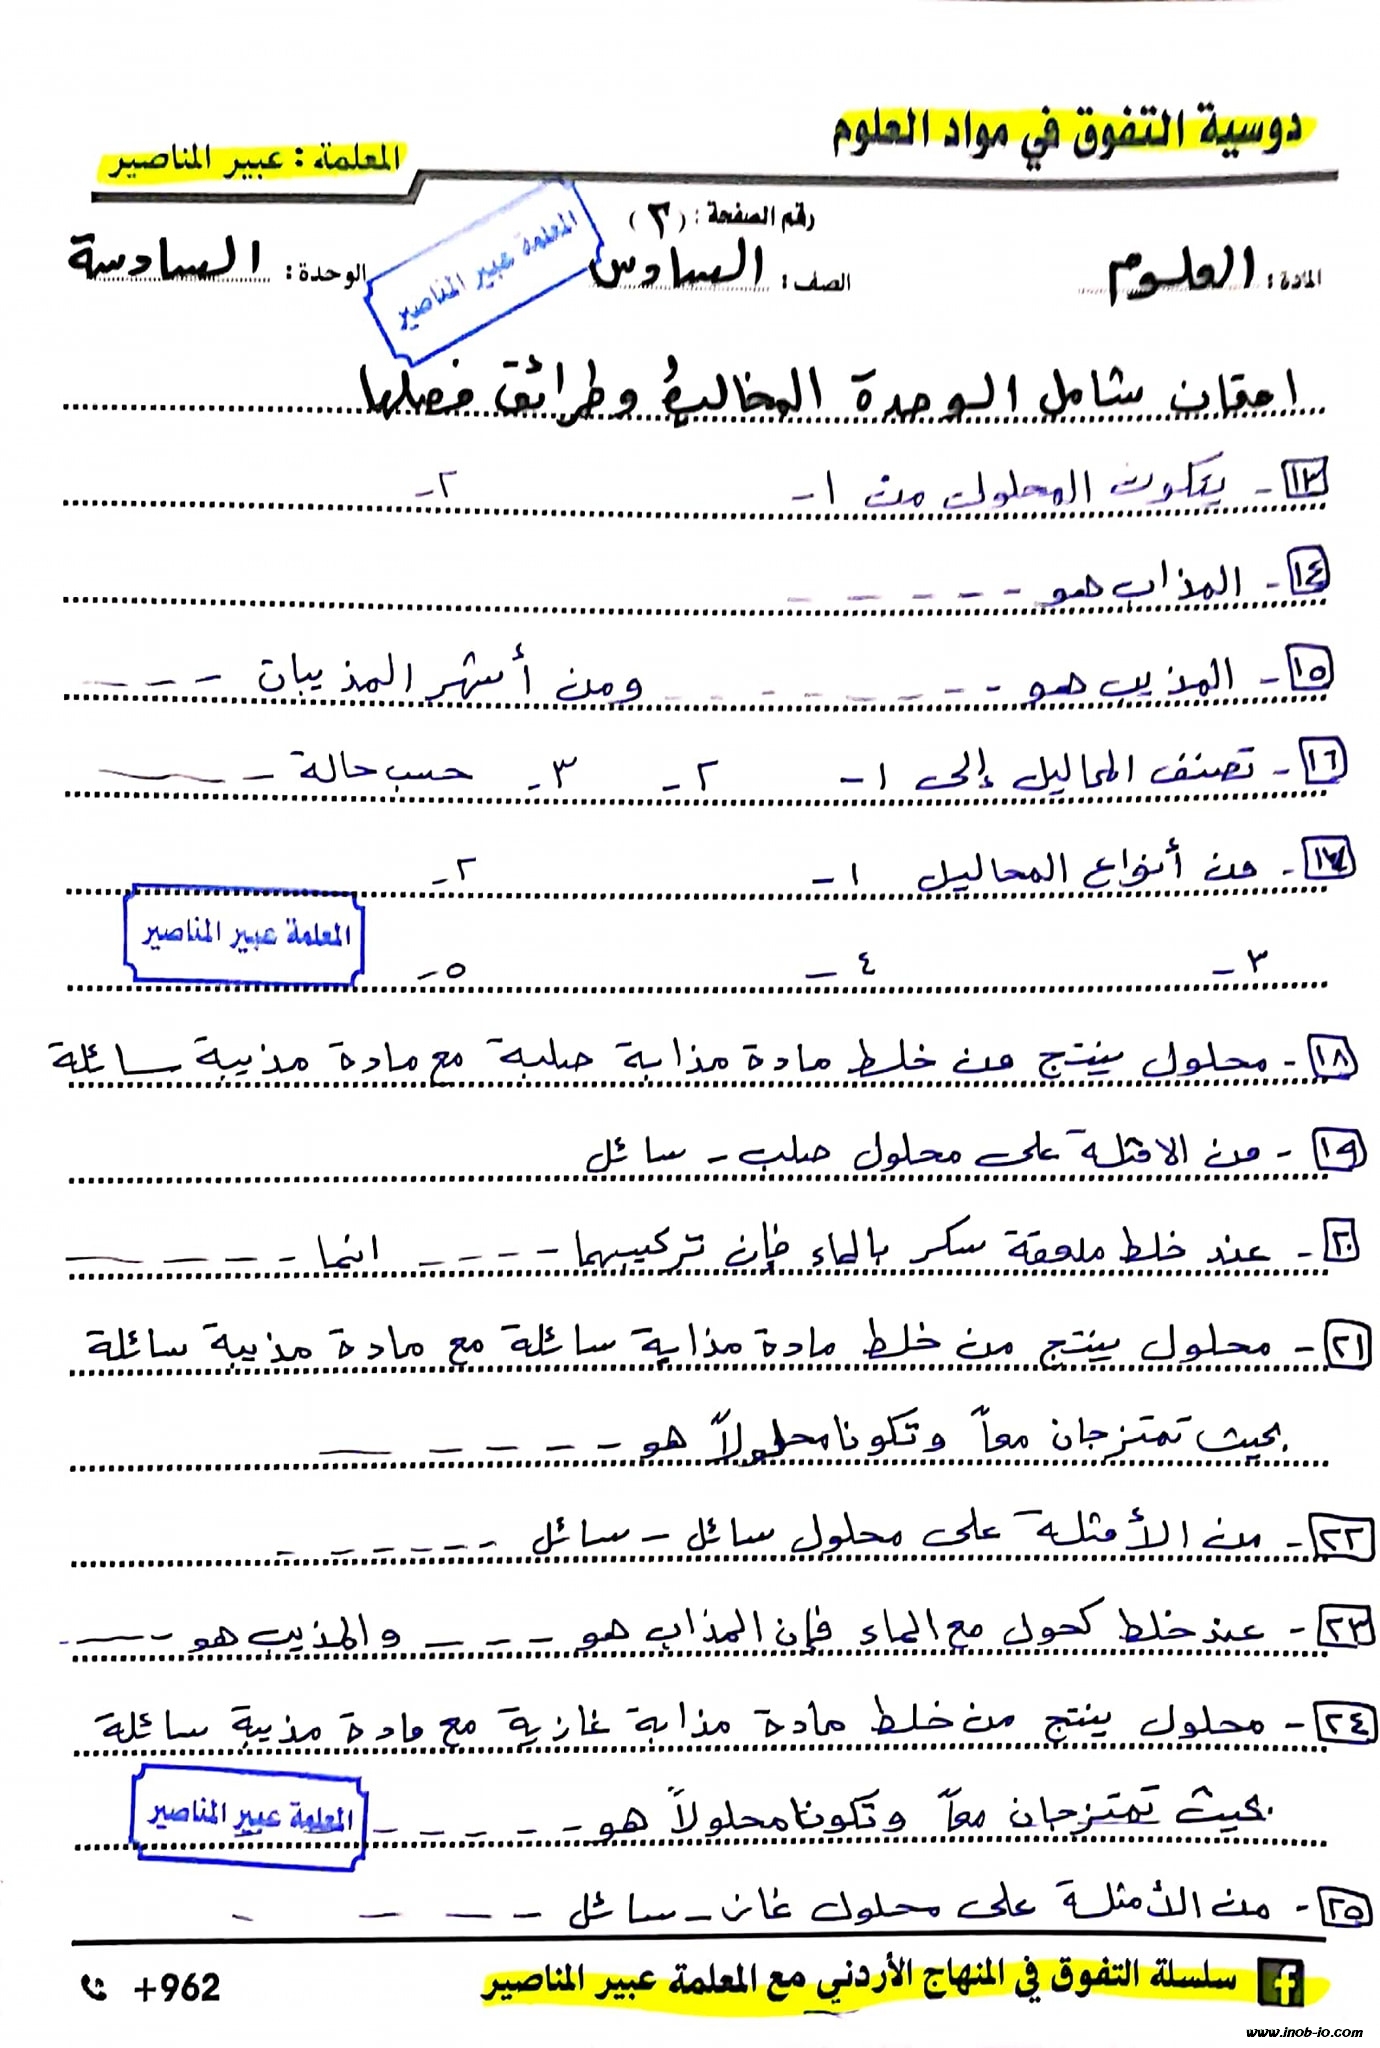 دوسية التفوق في مواد العلوم
المعلمة : عبير المناصير
رقم الصفحة : (٢)
المادة : العلوم الصف : السادس الوحدة : السادسة
المعلمة عبير المناصير
امتحان شامل الوحدة المخاليط وطرائق فصلها
١٣- يتكون المحلول من ١- ٢-
١٤- المذاب هو - - - - -
١٥- المذيب هو - - - - - - - - ومن أشهر المذيبات - - - -
١٦- تصنف المحاليل إلى ١- ٢- ٣- حسب حالة - - -
١٧- من أنواع المحاليل ١- ٢-
المعلمة عبير المناصير
٣- ٤- ٥-
١٨- محلول ينتج من خلط مادة مذابة صلبة مع مادة مذيبة سائلة
١٩- من الامثلة على محلول صلب - سائل
٢٠- عند خلط ملعقة سكر بالماء فإن تركيبهما - - - - انما - - - - -
٢١- محلول ينتج من خلط مادة مذابة سائلة مع مادة مذيبة سائلة
بحيث تمتزجان معاً وتكونا محلولاً هو - - - - - -
٢٢- من الأمثلة على محلول سائل - سائل - - - - - -
٢٣- عند خلط كحول مع الماء فإن المذاب هو - - - - والمذيب هو - - -
٢٤- محلول ينتج من خلط مادة مذابة غازية مع مادة مذيبة سائلة
بحيث تمتزجان معاً وتكونا محلولاً هو - - - - - -
المعلمة عبير المناصير
٢٥- من الأمثلة على محلول غاز - سائل - - - - -
سلسلة التفوق في المنهاج الأردني مع المعلمة عبير المناصير
+962
www.inob-io.com